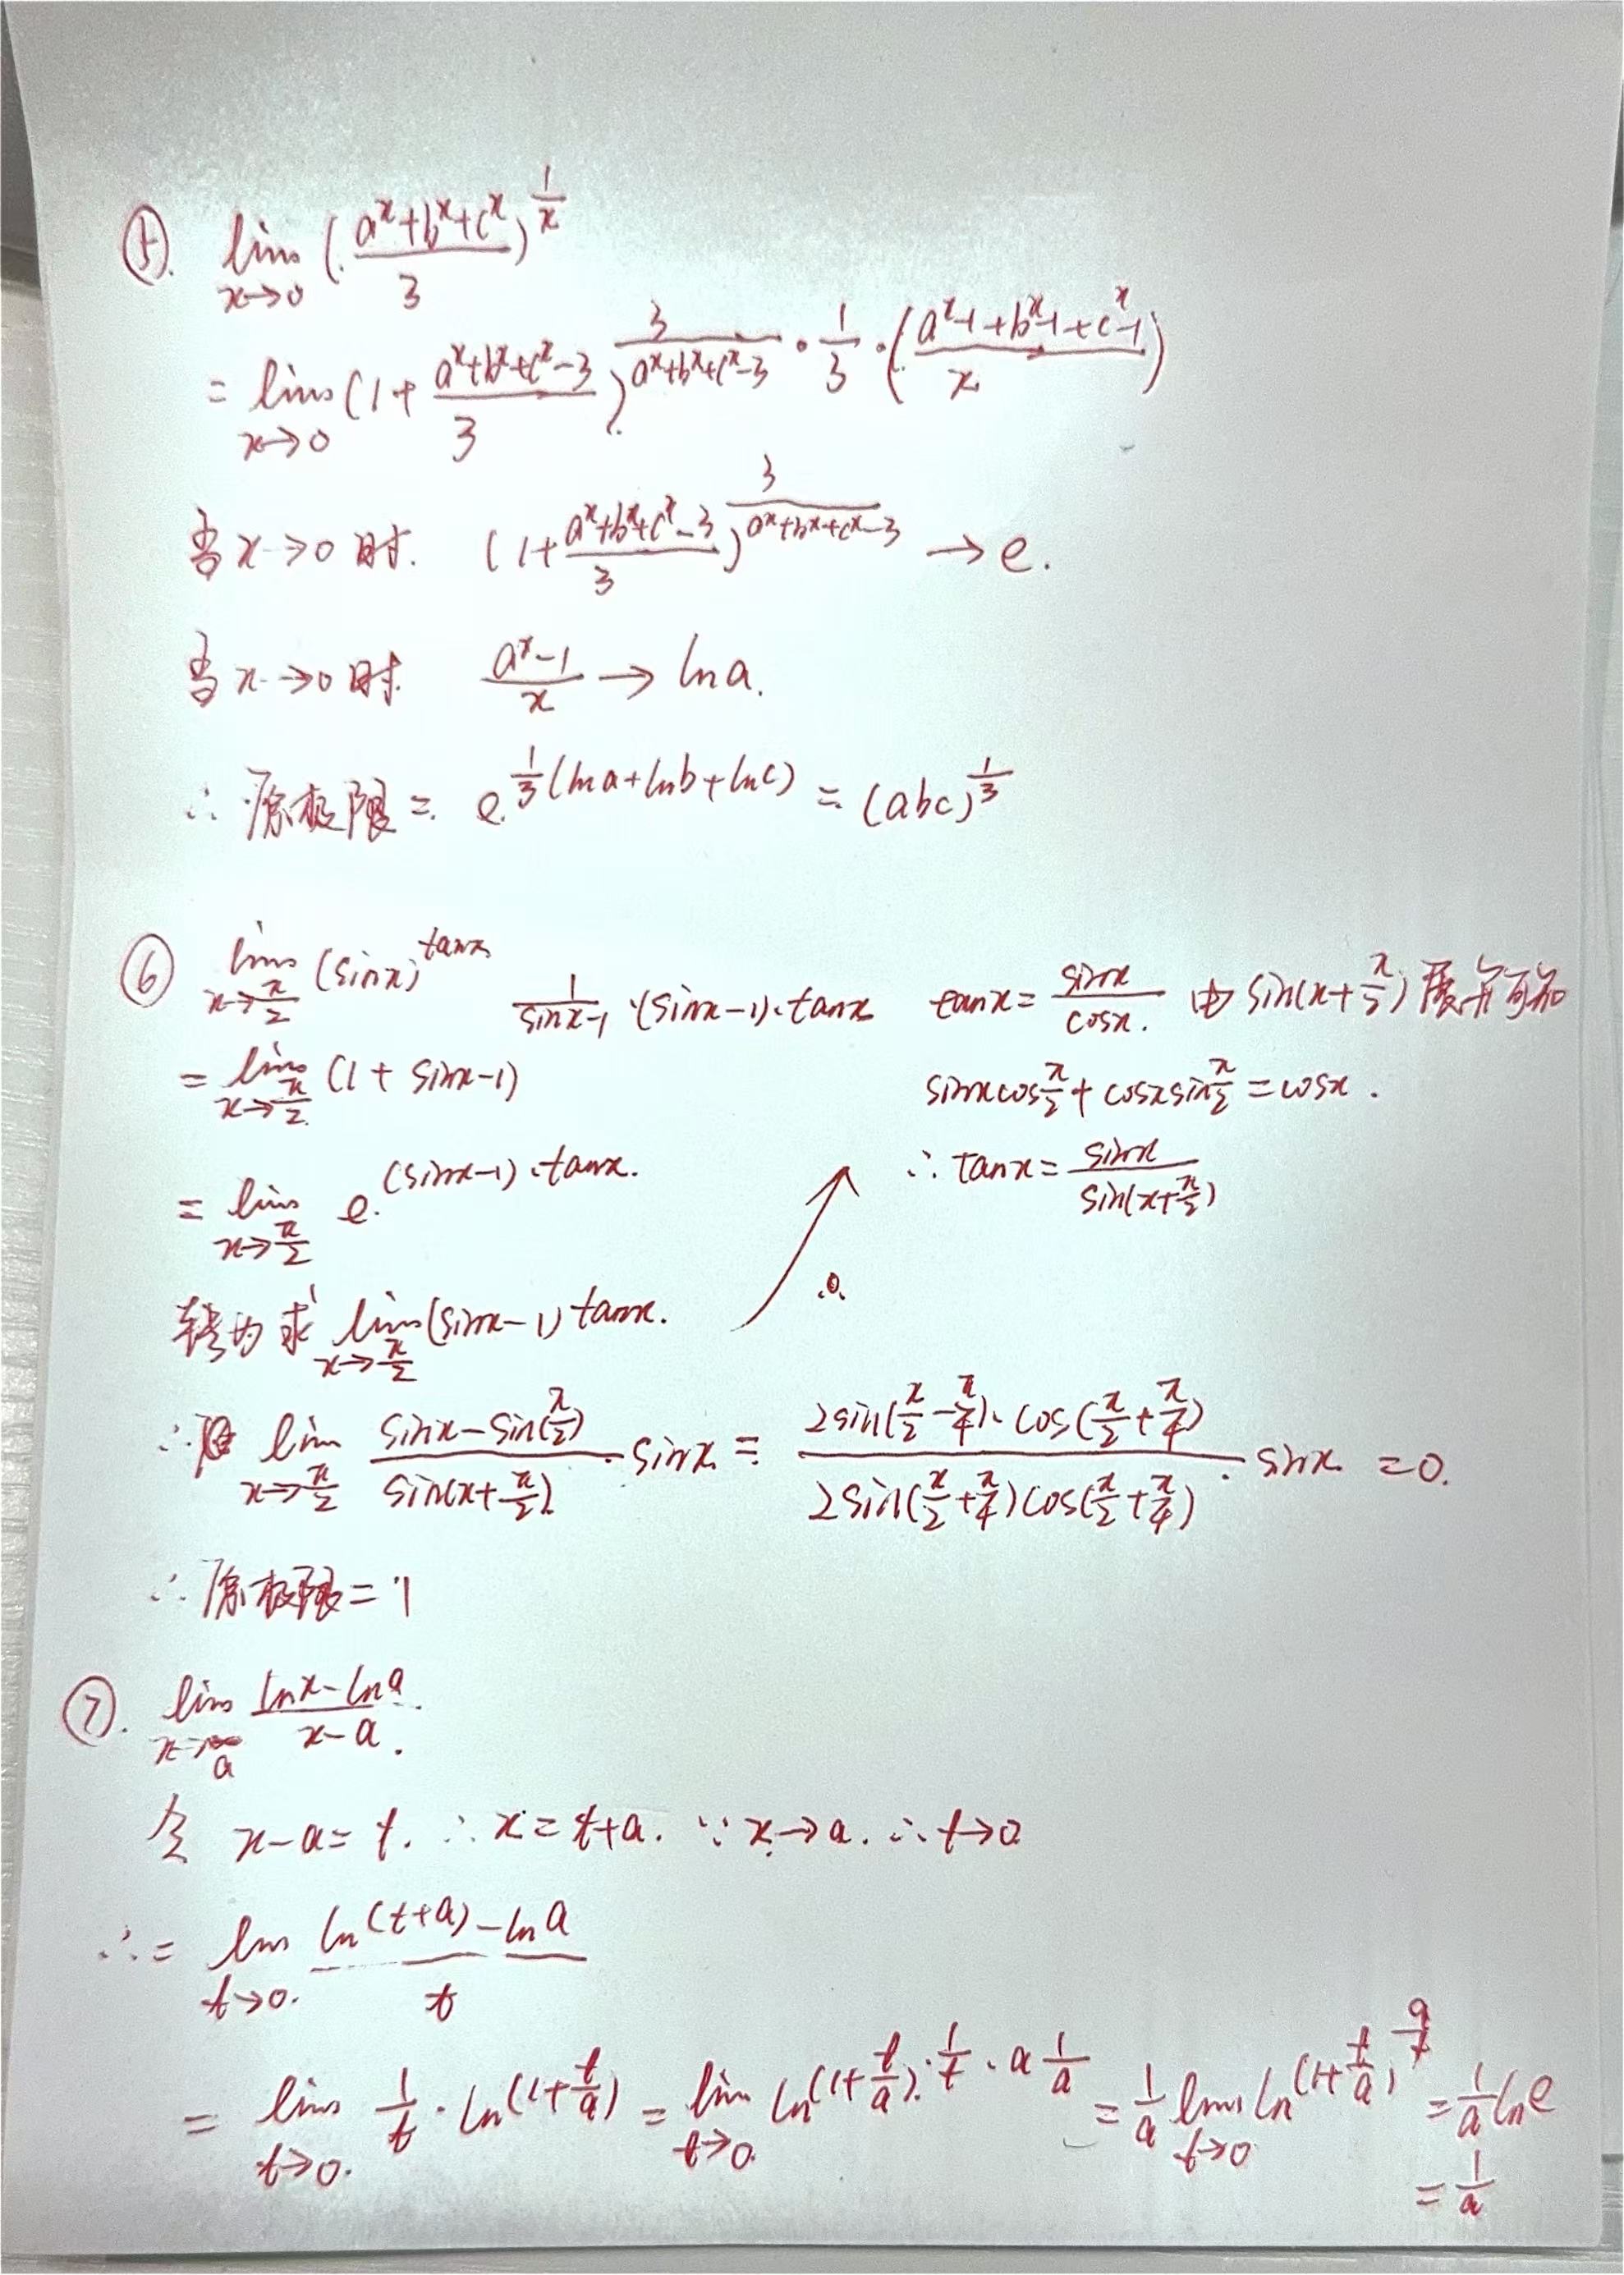 ⑤. lim_{x→0} ((a^x+b^x+c^x)/3)^{1/x}
= lim_{x→0} (1+(a^x+b^x+c^x-3)/3)^{3/(a^x+b^x+c^x-3) · 1/3 · ((a^x-1+b^x-1+c^x-1)/x)}
当x→0时. (1+(a^x+b^x+c^x-3)/3)^{3/(a^x+b^x+c^x-3)} → e.
当x→0时. (a^x-1)/x → lna.
∴原极限= e^{1/3(lna+lnb+lnc)} = (abc)^{1/3}
⑥ lim_{x→π/2} (sinx)^{tanx}
= lim_{x→π/2} (1+sinx-1)^{1/(sinx-1)·(sinx-1)·tanx}
= lim_{x→π/2} e^{(sinx-1)·tanx}.
转为求 lim_{x→π/2} (sinx-1)tanx.
tanx = sinx/cosx. 由sin(x+π/2)展开可知
sinxcosπ/2 + cosxsinπ/2 = cosx.
∴tanx = sinx/sin(x+π/2)
∴ lim_{x→π/2} (sinx-sin(π/2))/sin(x+π/2) · sinx = (2sin(x/2-π/4)·cos(x/2+π/4))/(2sin(x/2+π/4)cos(x/2+π/4)) · sinx = 0.
∴原极限=1
⑦. lim_{x→a} (lnx-lna)/(x-a).
令 x-a=t. ∴x=t+a. ∵x→a. ∴t→0
∴= lim_{t→0} (ln(t+a)-lna)/t
= lim_{t→0} 1/t · ln(1+t/a) = lim_{t→0} ln(1+t/a)^{·1/t·a 1/a} = 1/a lim_{t→0} ln(1+t/a)^{a/t} = 1/a lne
= 1/a